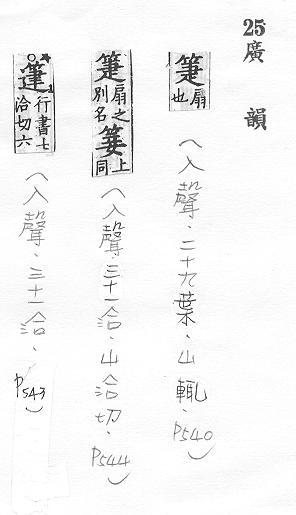 25廣韻
箑扇也
(入聲.二十九葉.山輒.P540)
箑扇之別名 上同
(入聲.三十一洽.山洽切.P544)
行書七洽切六
(入聲.三十一洽.P543)